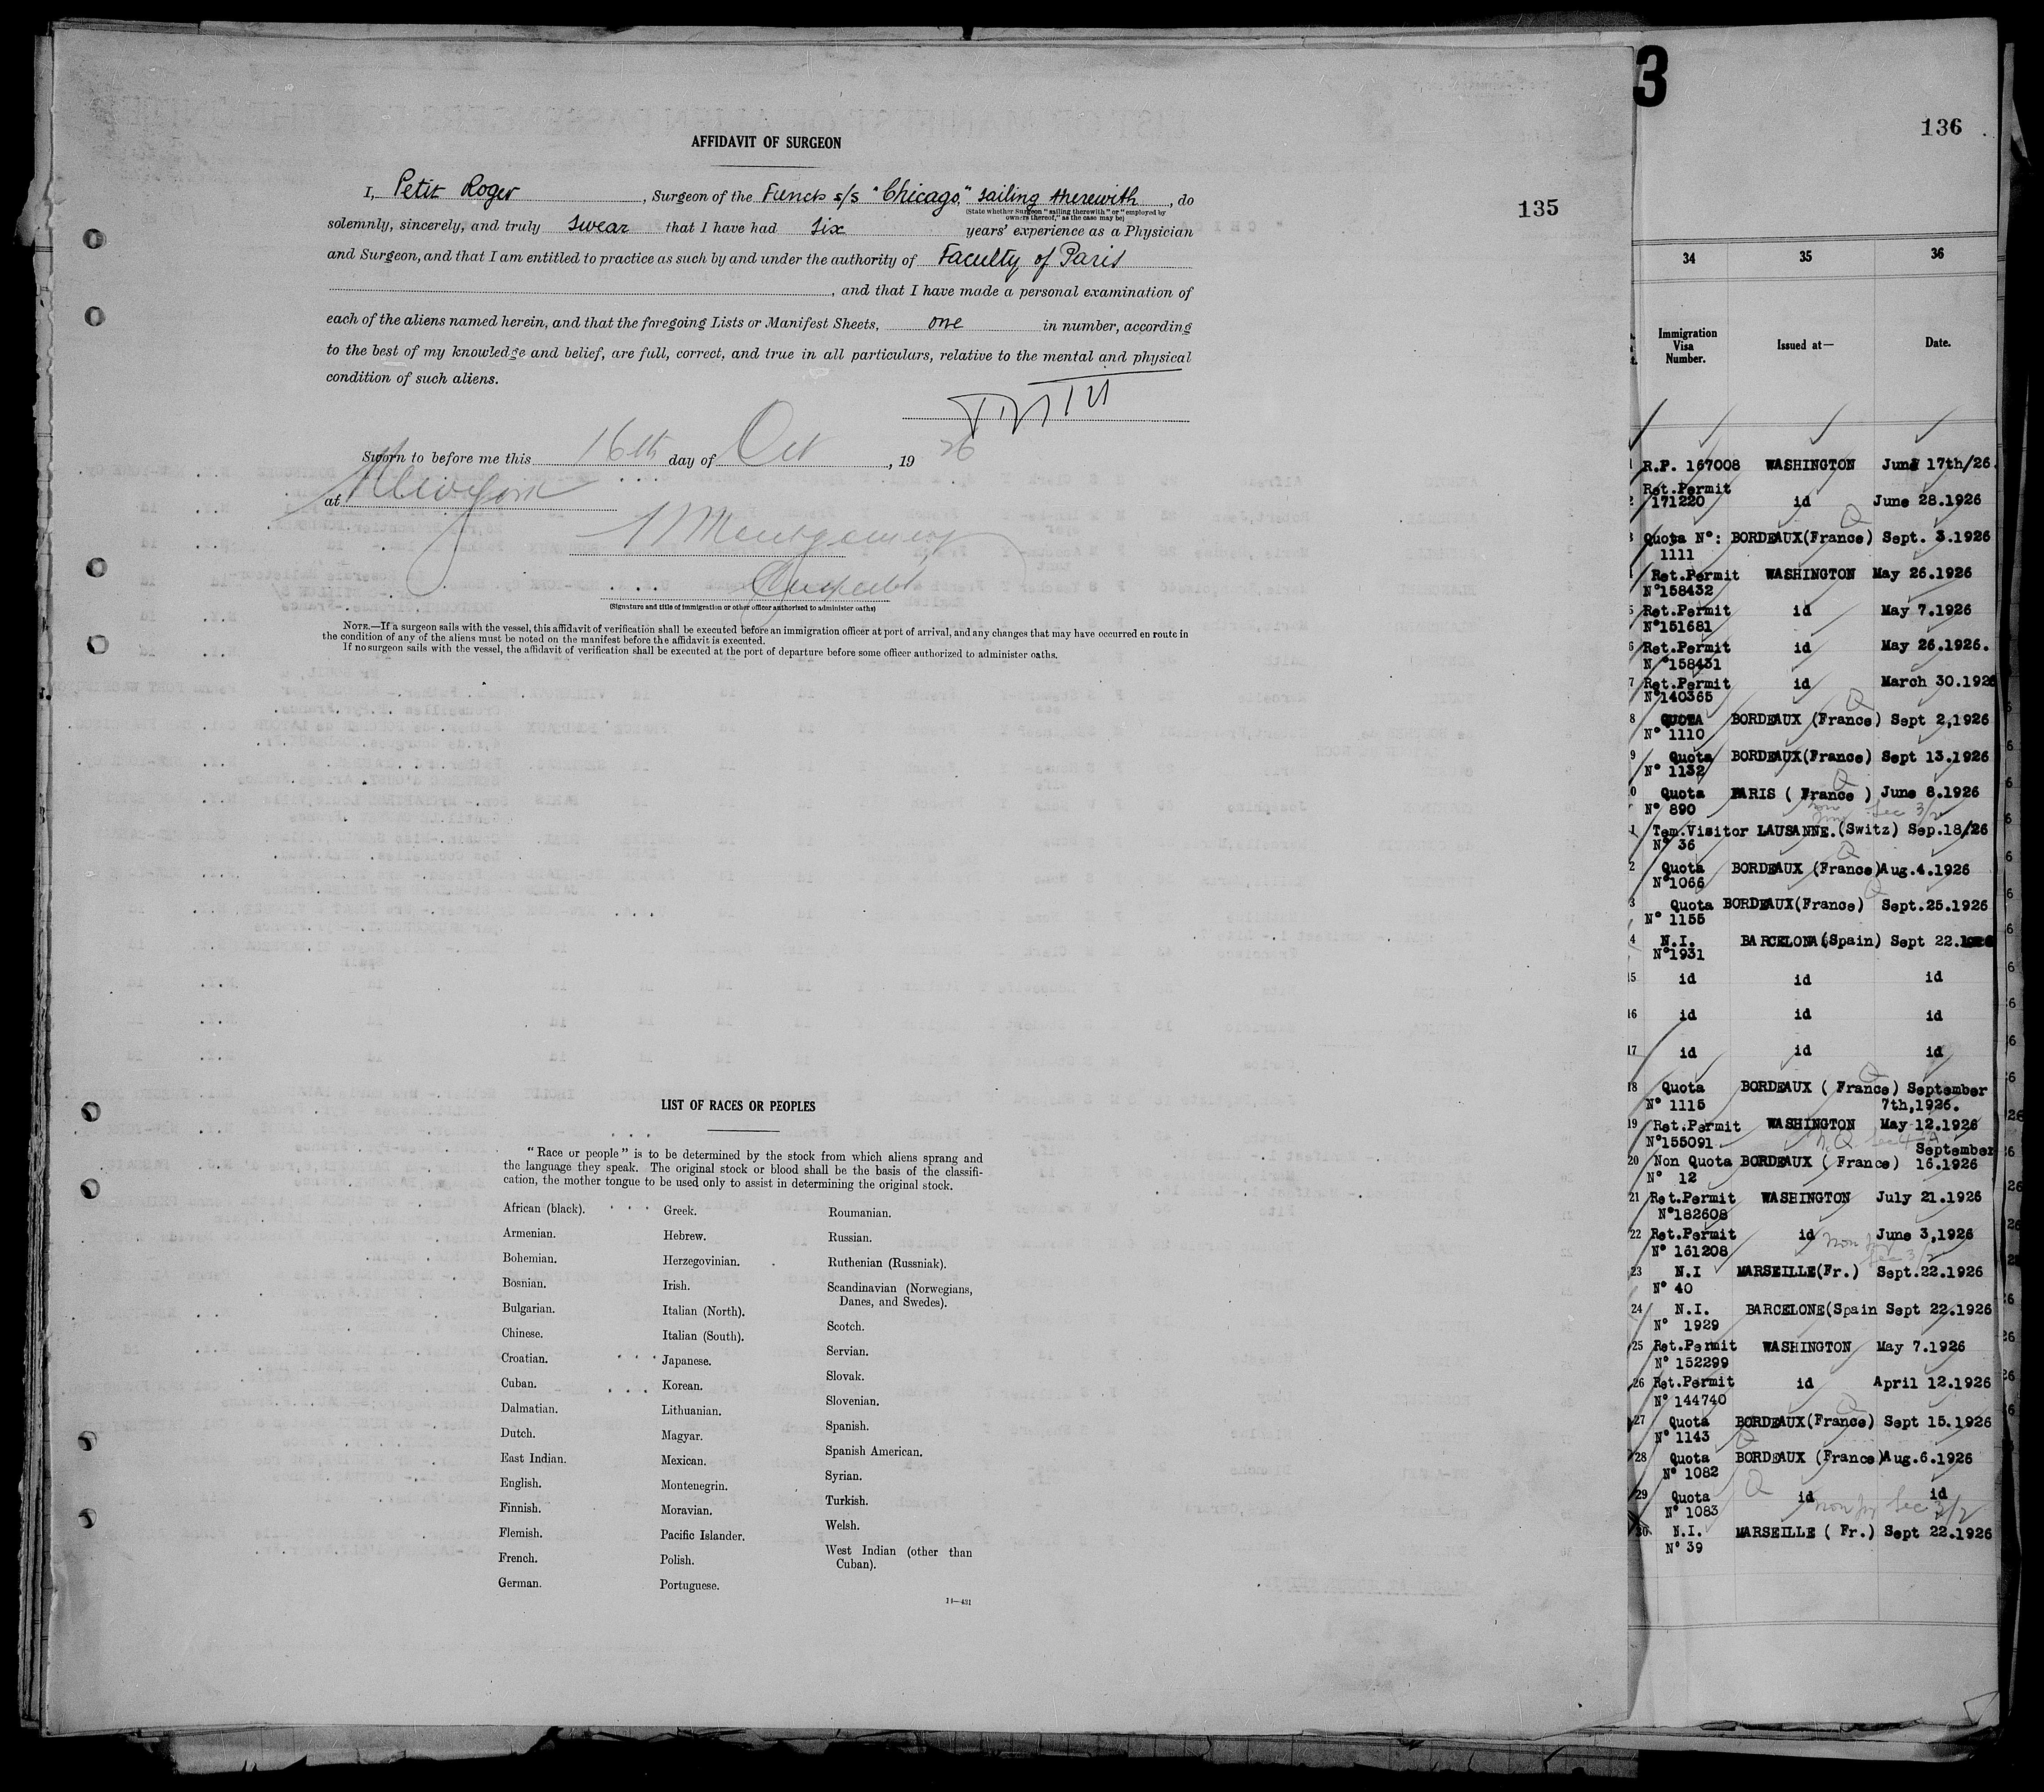 AFFIDAVIT OF SURGEON
I, Petit Roger, Surgeon of the French s/s "Chicago," sailing therewith, do
(State whether Surgeon "sailing therewith" or "employed by
owners thereof," as the case may be)
solemnly, sincerely, and truly swear that I have had six years' experience as a Physician
and Surgeon, and that I am entitled to practice as such by and under the authority of Faculty of Paris
, and that I have made a personal examination of
each of the aliens named herein, and that the foregoing Lists or Manifest Sheets, one in number, according
to the best of my knowledge and belief, are full, correct, and true in all particulars, relative to the mental and physical
condition of such aliens.
Sworn to before me this 16th day of Oct, 1926
at New York
Montgomery
(Signature and title of immigration or other officer authorized to administer oaths)
NOTE.—If a surgeon sails with the vessel, this affidavit of verification shall be executed before an immigration officer at port of arrival, and any changes that may have occurred en route in
the condition of any of the aliens must be noted on the manifest before the affidavit is executed.
If no surgeon sails with the vessel, the affidavit of verification shall be executed at the port of departure before some officer authorized to administer oaths.
135
LIST OF RACES OR PEOPLES
"Race or people" is to be determined by the stock from which aliens sprang and
the language they speak. The original stock or blood shall be the basis of the classifi-
cation, the mother tongue to be used only to assist in determining the original stock.
African (black).
Armenian.
Bohemian.
Bosnian.
Bulgarian.
Chinese.
Croatian.
Cuban.
Dalmatian.
Dutch.
East Indian.
English.
Finnish.
Flemish.
French.
German.
Greek.
Hebrew.
Herzegovinian.
Irish.
Italian (North).
Italian (South).
Japanese.
Korean.
Lithuanian.
Magyar.
Mexican.
Montenegrin.
Moravian.
Pacific Islander.
Polish.
Portuguese.
Roumanian.
Russian.
Ruthenian (Russniak).
Scandinavian (Norwegians,
Danes, and Swedes).
Scotch.
Servian.
Slovak.
Slovenian.
Spanish.
Spanish American.
Syrian.
Turkish.
Welsh.
West Indian (other than
Cuban).
14—431
3
136
34 35 36
Immigration
Visa
Number.
Issued at—
Date.
1 R.P. 167008 WASHINGTON June 17th/26.
Ret.Permit
2 171220 id June 28.1926
Q
3 Quota N°: BORDEAUX(France) Sept. 3.1926
1111
4 Ret.Permit WASHINGTON May 26.1926
N°158432
5 Ret.Permit id May 7.1926
N°151681
6 Ret.Permit id May 26.1926.
N °158431
7 Ret.Permit id March 30.1926
N°140365
Q
8 QUOTA BORDEAUX (France) Sept 2,1926
N° 1110
9 Quota BORDEAUX(France) Sept 13.1926
N° 1132
Q
0 Quota PARIS ( France ) June 8.1926
N° 890
Sec 3/2
1 Tem.Visitor LAUSANNE.(Switz) Sep.18/26
N° 36
Q
2 Quota BORDEAUX (France)Aug.4.1926
N°1066
Q
3 Quota BORDEAUX(France) Sept.25.1926
N° 1155
4 N.I. BARCELONA(Spain) Sept 22.1926
N°1931
15 id id id
16 id id id
17 id id id
Q
18 Quota BORDEAUX ( France) September
N° 1115 7th,1926.
19 Ret.Permit WASHINGTON May 12.1926
N°155091
N.Q. Sec 4-A
September
20 Non Quota BORDEAUX ( France) 16.1926
N° 12
21 Ret.Permit WASHINGTON July 21.1926
N°182608
22 Ret.Permit id June 3,1926
N° 161208
Sec 3/2
23 N.I MARSEILLE(Fr.) Sept.22.1926
N° 40
24 N.I. BARCELONE(Spain Sept 22.1926
N° 1929
25 Ret.Permit WASHINGTON May 7.1926
N° 152299
26 Ret.Permit id April 12.1926
N° 144740
Q
27 Quota BORDEAUX(France) Sept 15.1926
N° 1143
Q
28 Quota BORDEAUX (France)Aug.6.1926
N° 1082
Q
29 Quota id id
N° 1083
Sec 3/2
30 N.I. MARSEILLE ( Fr.) Sept 22.1926
N° 39